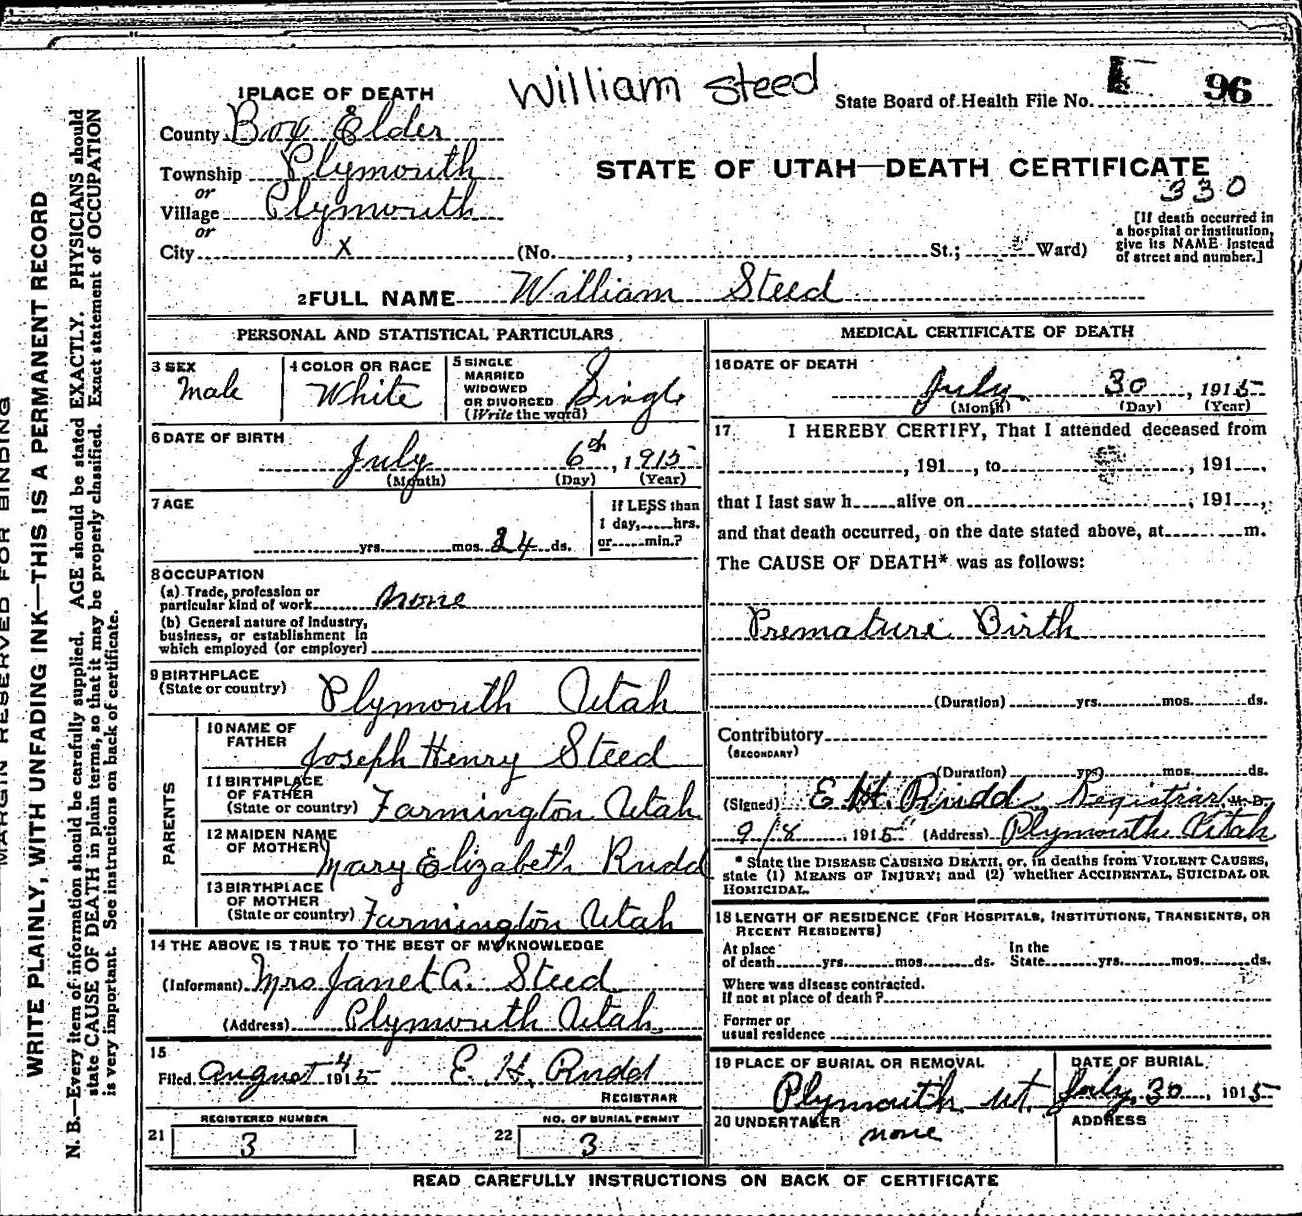 William Steed
1 PLACE OF DEATH
State Board of Health File No. 96
County Box Elder
STATE OF UTAH—DEATH CERTIFICATE
Township Plymouth
330
or
Village Plymouth
or
[If death occurred in
a hospital or institution,
give its NAME instead
of street and number.]
City X (No. , St.; Ward)
2 FULL NAME William Steed
PERSONAL AND STATISTICAL PARTICULARS
3 SEX
Male
4 COLOR OR RACE
White
5 SINGLE
MARRIED
WIDOWED
OR DIVORCED
(Write the word)
Single
6 DATE OF BIRTH
July 6th, 1915
(Month) (Day) (Year)
7 AGE
yrs. mos. 24 ds.
If LESS than
1 day, hrs.
or min.?
8 OCCUPATION
(a) Trade, profession or
particular kind of work none
(b) General nature of Industry,
business, or establishment in
which employed (or employer)
9 BIRTHPLACE
(State or country) Plymouth Utah
PARENTS
10 NAME OF
FATHER
Joseph Henry Steed
11 BIRTHPLACE
OF FATHER
(State or country) Farmington Utah
12 MAIDEN NAME
OF MOTHER
Mary Elizabeth Rudd
13 BIRTHPLACE
OF MOTHER
(State or country) Farmington Utah
14 THE ABOVE IS TRUE TO THE BEST OF MY KNOWLEDGE
(Informant) Mrs Janet A. Steed
(Address) Plymouth Utah
15
Filed August 4 1915 E. H. Rudd
REGISTRAR
REGISTERED NUMBER
21 3
NO. OF BURIAL PERMIT
22 3
MEDICAL CERTIFICATE OF DEATH
16 DATE OF DEATH
July 30, 1915
(Month) (Day) (Year)
17 I HEREBY CERTIFY, That I attended deceased from
, 191 , to , 191 ,
that I last saw h alive on , 191 ,
and that death occurred, on the date stated above, at m.
The CAUSE OF DEATH* was as follows:
Premature Birth
(Duration) yrs. mos. ds.
Contributory
(SECONDARY)
(Duration) yrs. mos. ds.
(Signed) E. H. Rudd, Registrar M. D.
9/8 1915 (Address) Plymouth Utah
* State the DISEASE CAUSING DEATH, or, in deaths from VIOLENT CAUSES,
state (1) MEANS OF INJURY; and (2) whether ACCIDENTAL, SUICIDAL OR
HOMICIDAL.
18 LENGTH OF RESIDENCE (FOR HOSPITALS, INSTITUTIONS, TRANSIENTS, OR
RECENT RESIDENTS)
At place
of death yrs. mos. ds.
In the
State yrs. mos. ds.
Where was disease contracted.
If not at place of death?
Former or
usual residence
19 PLACE OF BURIAL OR REMOVAL
Plymouth Ut.
DATE OF BURIAL
July 30, 1915
20 UNDERTAKER
none
ADDRESS
READ CAREFULLY INSTRUCTIONS ON BACK OF CERTIFICATE
MARGIN RESERVED FOR BINDING
WRITE PLAINLY, WITH UNFADING INK—THIS IS A PERMANENT RECORD
N. B.—Every item of information should be carefully supplied. AGE should be stated EXACTLY. PHYSICIANS should
state CAUSE OF DEATH in plain terms, so that it may be properly classified. Exact statement of OCCUPATION
is very important. See instructions on back of certificate.